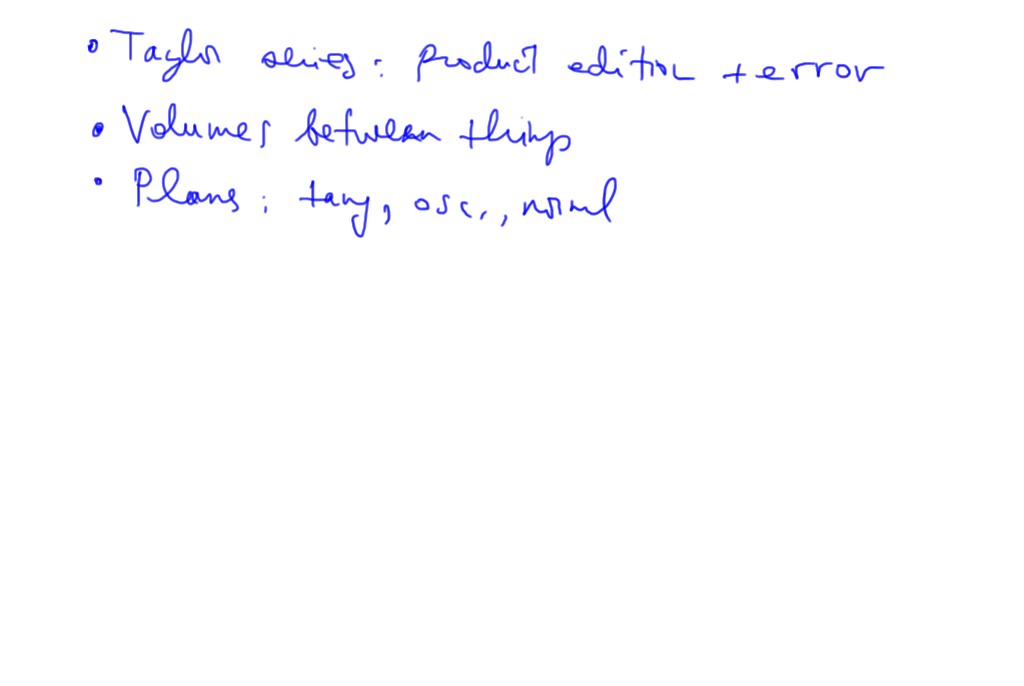 • Taylor series : product edition + error
• Volumes between things
• Plans : tang, osc., normal